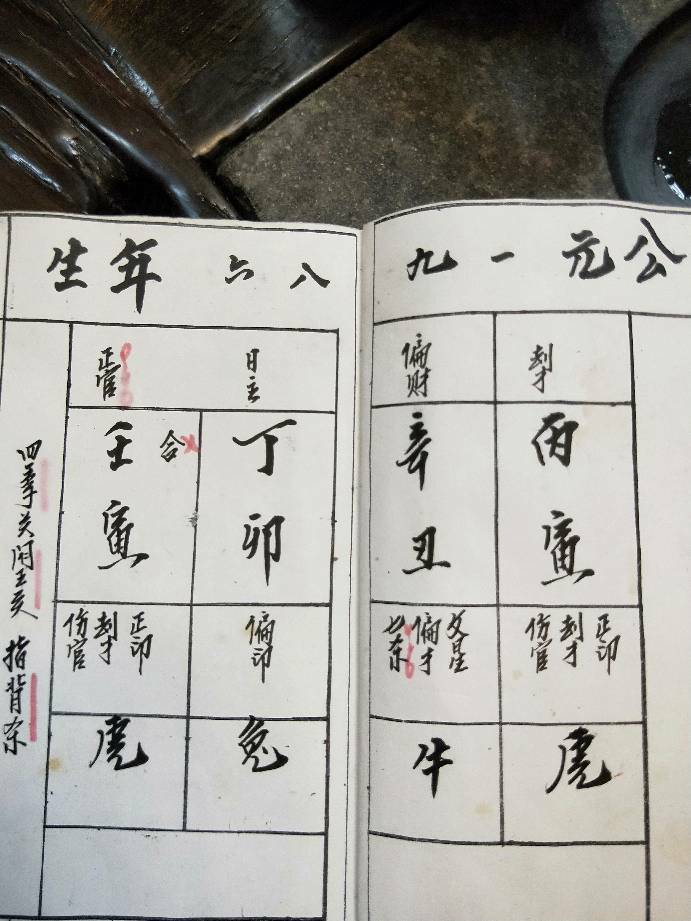 公元一九八六年生
劫才
丙
寅
正印
劫才
伤官
虎
偏财
辛
丑
文星
偏才
七杀
牛
日主
丁
卯
偏印
兔
正官
合
壬
寅
正印
劫才
伤官
虎
四季关闫王关 指背杀